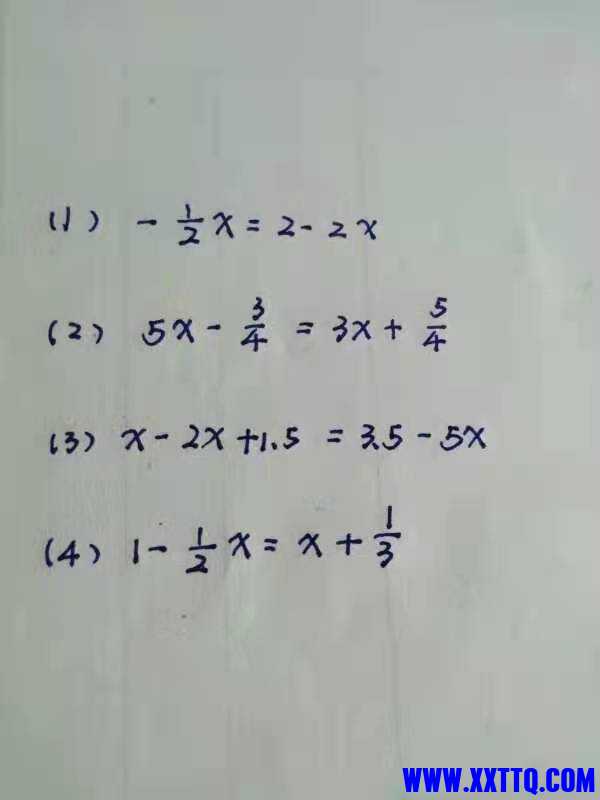 (1) - 1/2 x = 2 - 2x
(2) 5x - 3/4 = 3x + 5/4
(3) x - 2x + 1.5 = 3.5 - 5x
(4) 1 - 1/2 x = x + 1/3
WWW.XXTTQ.COM